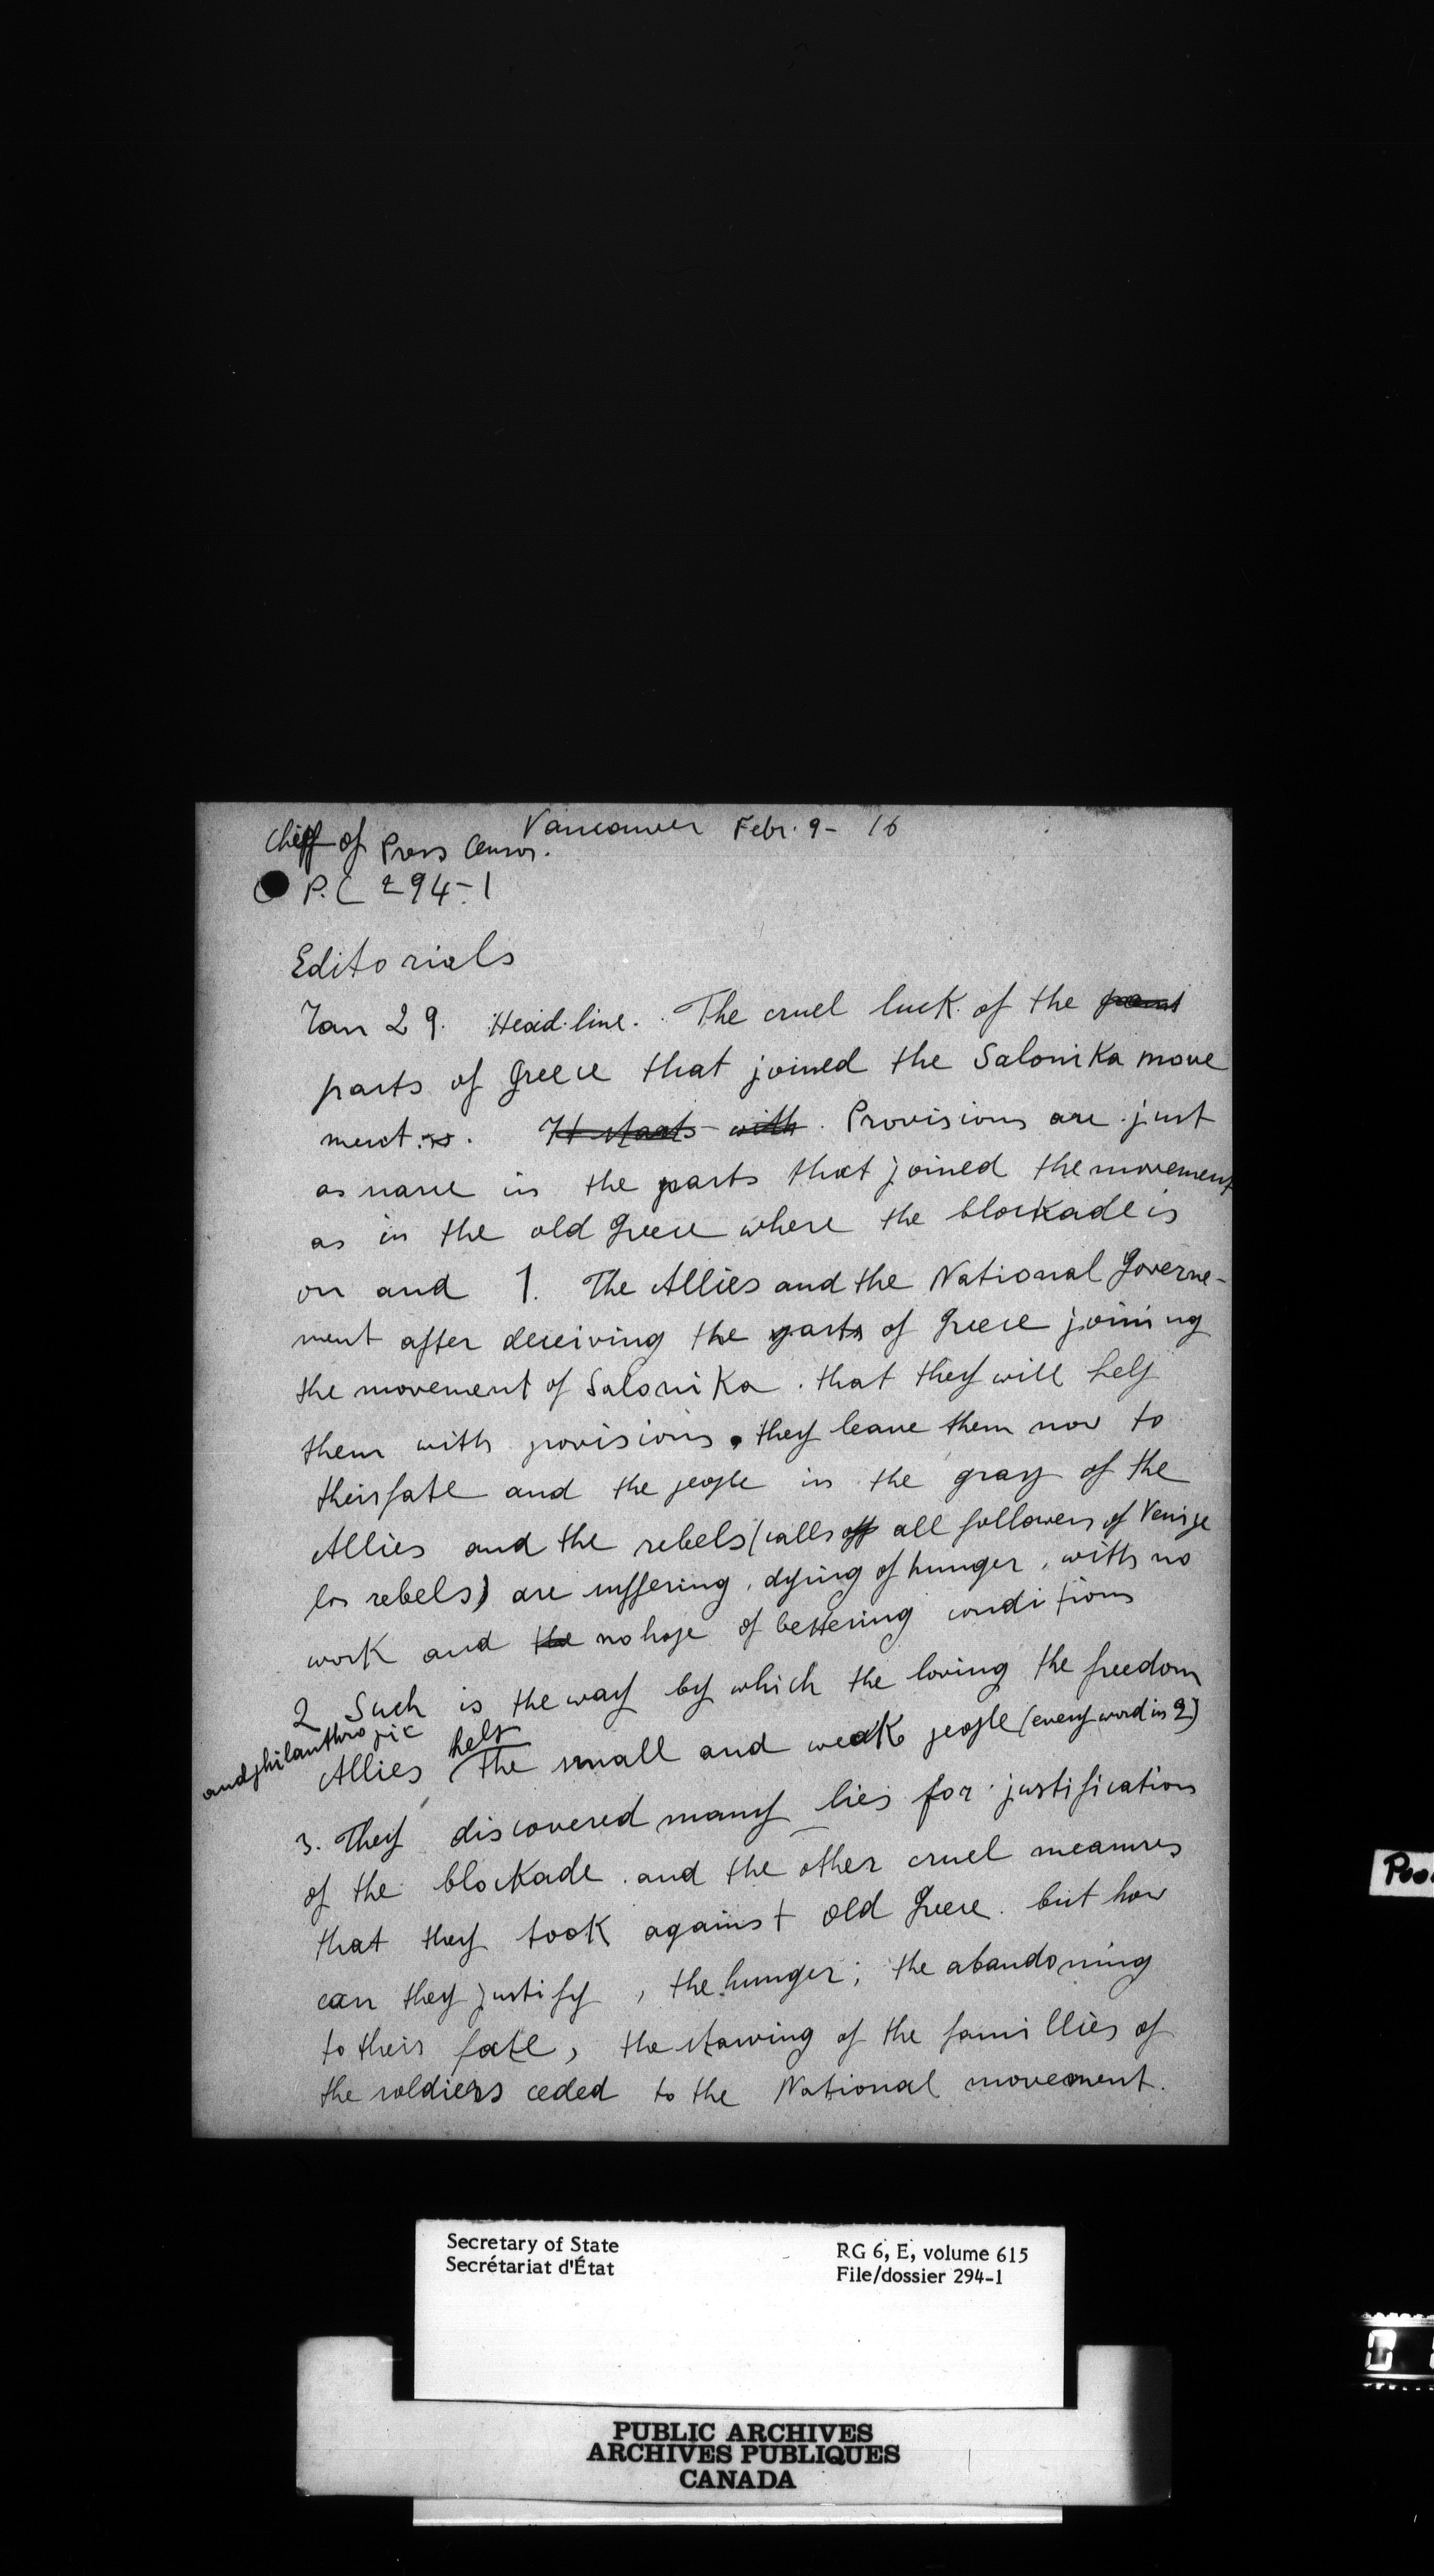 Vancouver Febr. 9- 16
Cheff of Press Censor.
P.C 294-1
Editorials
Jan 29. Head line. The cruel luck of the
parts of Greece that joined the Salonika move
ment. It starts with. Provisions are just
as rare in the parts that joined the movement
as in the old Greece where the blockade is
on and 1. The Allies and the National Governe-
ment after deceiving the parts of Greece joining
the movement of Salonika. that they will help
them with provisions, they leave them now to
their fate and the people in the grasp of the
Allies and the rebels (calls all followers of Venize
los rebels) are suffering, dying of hunger, with no
work and the no hope of bettering conditions
2 Such is the way by which the loving the freedom
and philanthropic
Allies help the small and weak people (every word in 2)
3. They discovered many lies for justification
of the blockade and the other cruel measures
that they took against old Greece. but how
can they justify, the hunger; the abandoning
to their fate, the starving of the famillies of
the soldiers ceded to the National movement.
Secretary of State
Secrétariat d'État
RG 6, E, volume 615
File/dossier 294-1
PUBLIC ARCHIVES
ARCHIVES PUBLIQUES
CANADA